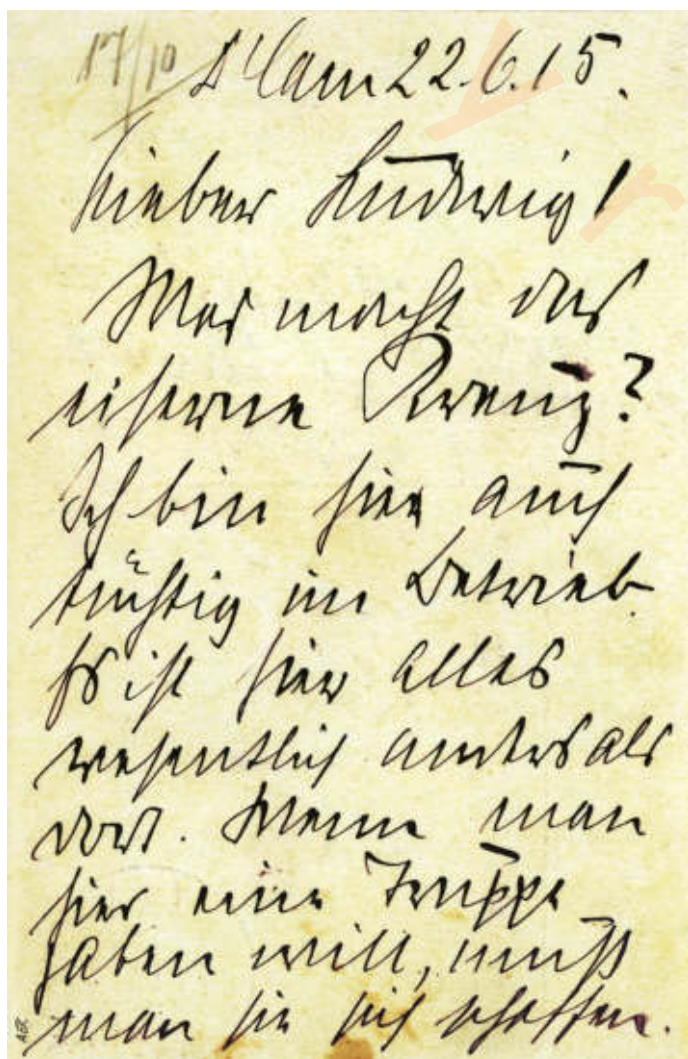 17/10
am 22.6.15.
Lieber Ludwig!
Was macht das
eiserne Kreuz?
Ich bin hier auch
tüchtig im Betrieb
Es ist hier alles
wesentlich anders als
dort. Wenn man
hier eine Truppe
haben will, muß
man sie sich schaffen.